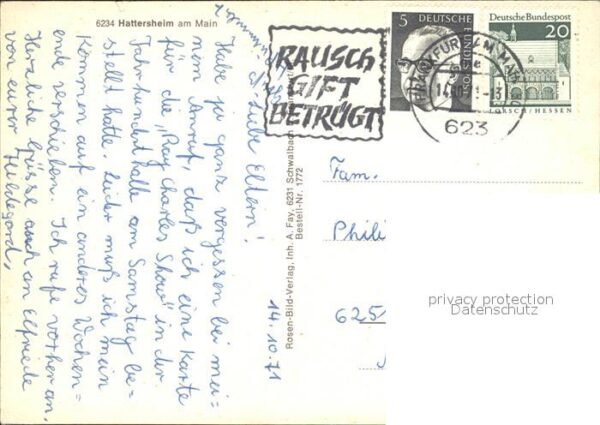 6234 Hattersheim am Main
Liebe Eltern!
Habe ja ganz vergessen bei mei=
nem Anruf, daß ich eine Karte
für die "Ray Charles Show" in der
Jahrhunderthalle am Samstag be=
stellt hatte. Leider muß ich mein
Kommen auf ein anderes Wochen=
ende verschieben. Ich rufe vorher an.
Herzliche Grüsse auch an Elfriede
von eurer Hildegard,
14.10.71
Rosen-Bild-Verlag, Inh. A. Fay, 6231 Schwalbach
Bestell-Nr. 1772
RAUSCH
GIFT
BETRÜGT
5
DEUTSCHE
BUNDESPOST
Deutsche Bundespost
20
LORSCH/HESSEN
FRANKFURT AM MAIN
623
Fam.
Phili
625
privacy protection
Datenschutz